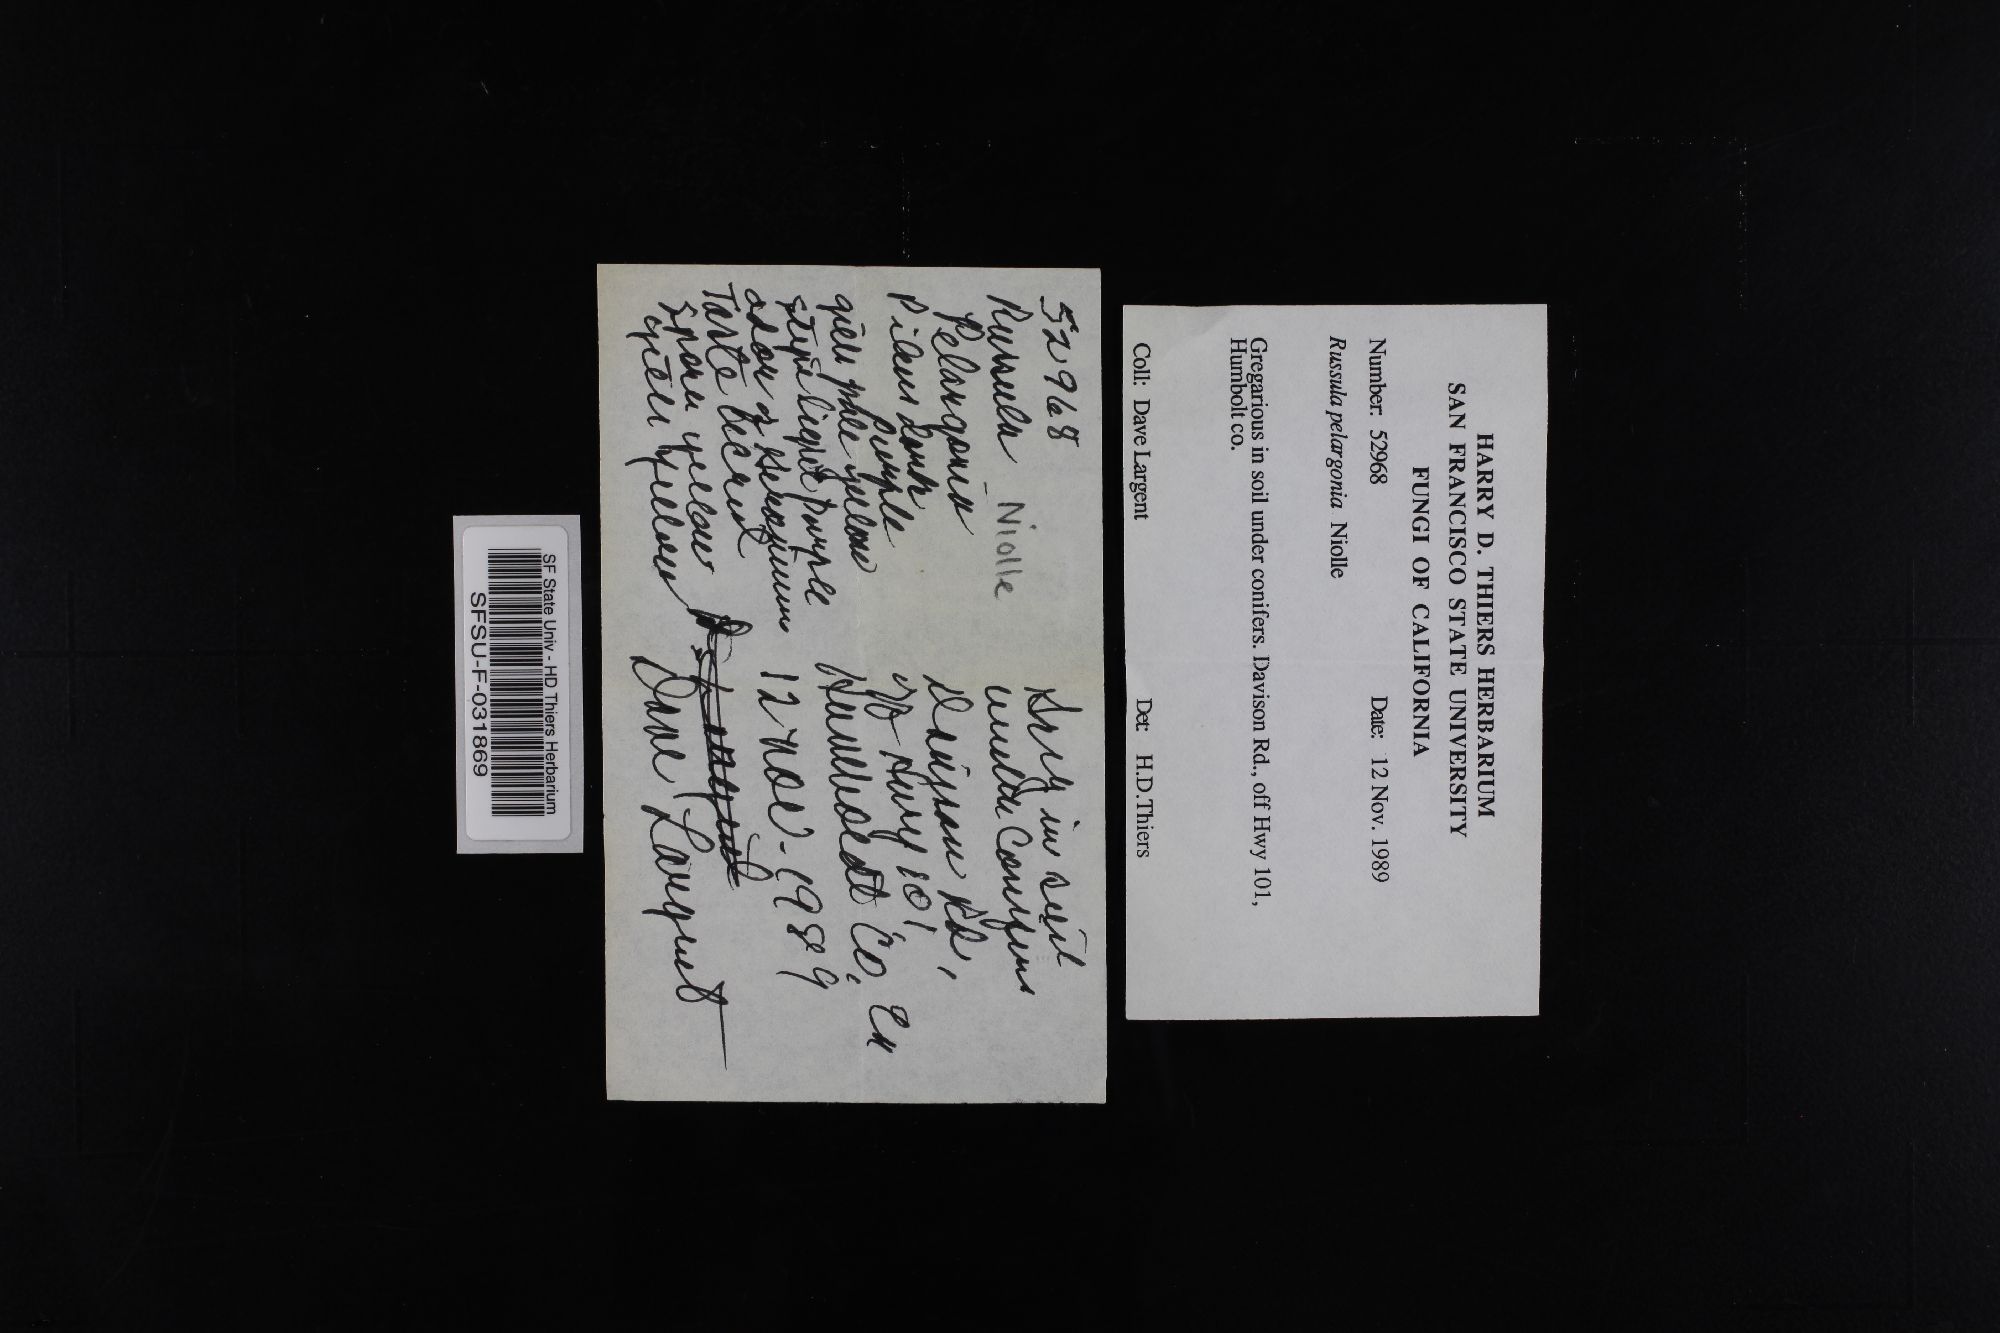 HARRY D. THIERS HERBARIUM
SAN FRANCISCO STATE UNIVERSITY
FUNGI OF CALIFORNIA
Number: 52968 Date: 12 Nov. 1989
Russula pelargonia Niolle
Gregarious in soil under conifers. Davison Rd., off Hwy 101,
Humbolt co.
Coll: Dave Largent Det: H.D.Thiers
52968
Russula Niolle
Pelargonia
Pileus dark
purple
gills pale yellow
stipe light purple
odor of
Taste
spores yellow
yellow
in soil
under Conifers
Davison Rd,
Hwy 101
Humboldt Co, Ca
12 Nov-1989
Dave Largent
SF State Univ - HD Thiers Herbarium
SFSU-F-031869